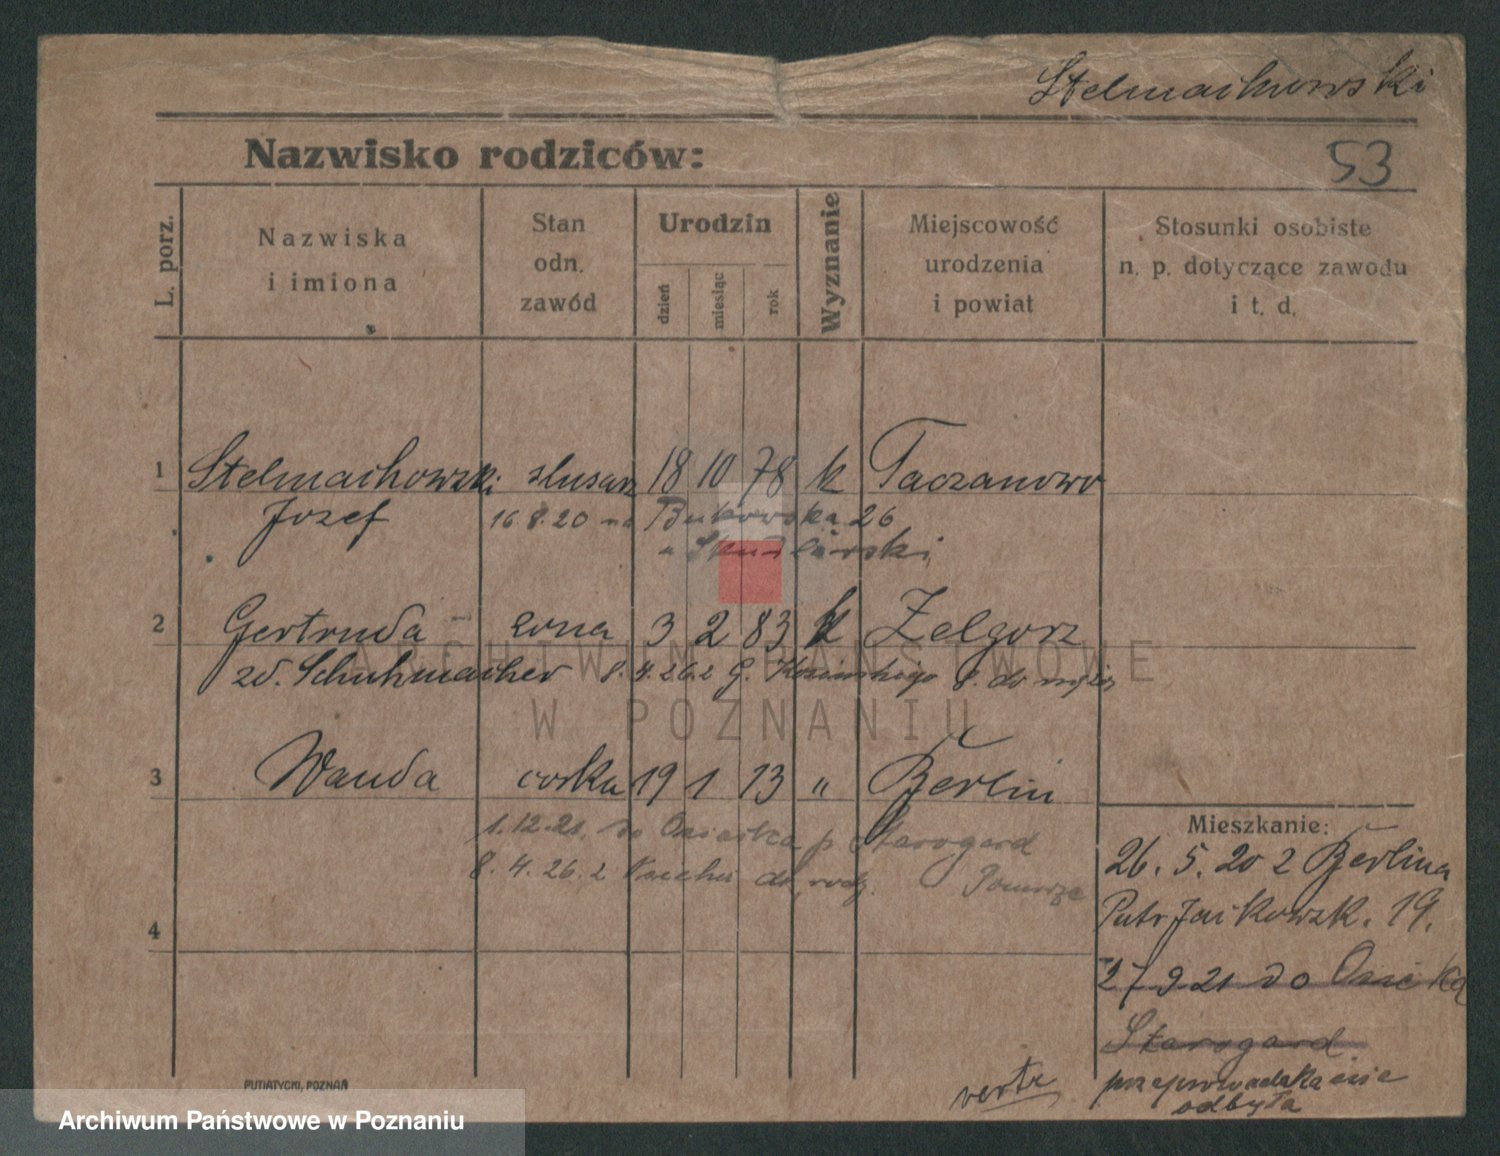 Stelmachowski
Nazwisko rodziców:
53
L. porz.
Nazwiska
i imiona
Stan
odn.
zawód
Urodzin
dzień
miesiąc
rok
Wyznanie
Miejscowość
urodzenia
i powiat
Stosunki osobiste
n. p. dotyczące zawodu
i t. d.
1 Stelmachowski slusarz 18 10 78 k Taczanowo
Jozef 16.8.20 na Bukowska 26
2 Gertruda zona 3 2 83 k Zelgorz
zd. Schuhmacher 8.4.26 z G.
3 Wanda corka 19 1 13 " Berlin
1.12.21. do p Starogard
8.4.26. z
4
Mieszkanie:
26. 5. 20 z Berlina
Patr Jackowsk. 19.
27 9 21 do
Starogard
odbyła
verte
PUTIATYCKI, POZNAŃ
ARCHIWUM PAŃSTWOWE
W POZNANIU
Archiwum Państwowe w Poznaniu